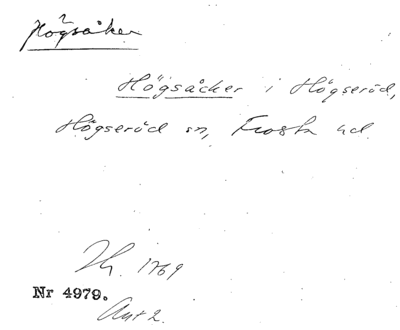 Högsåker
Högsåcker i Högseröd,
Högseröd sn, Frosta hd.
1769
Nr 4979.
Akt 2.